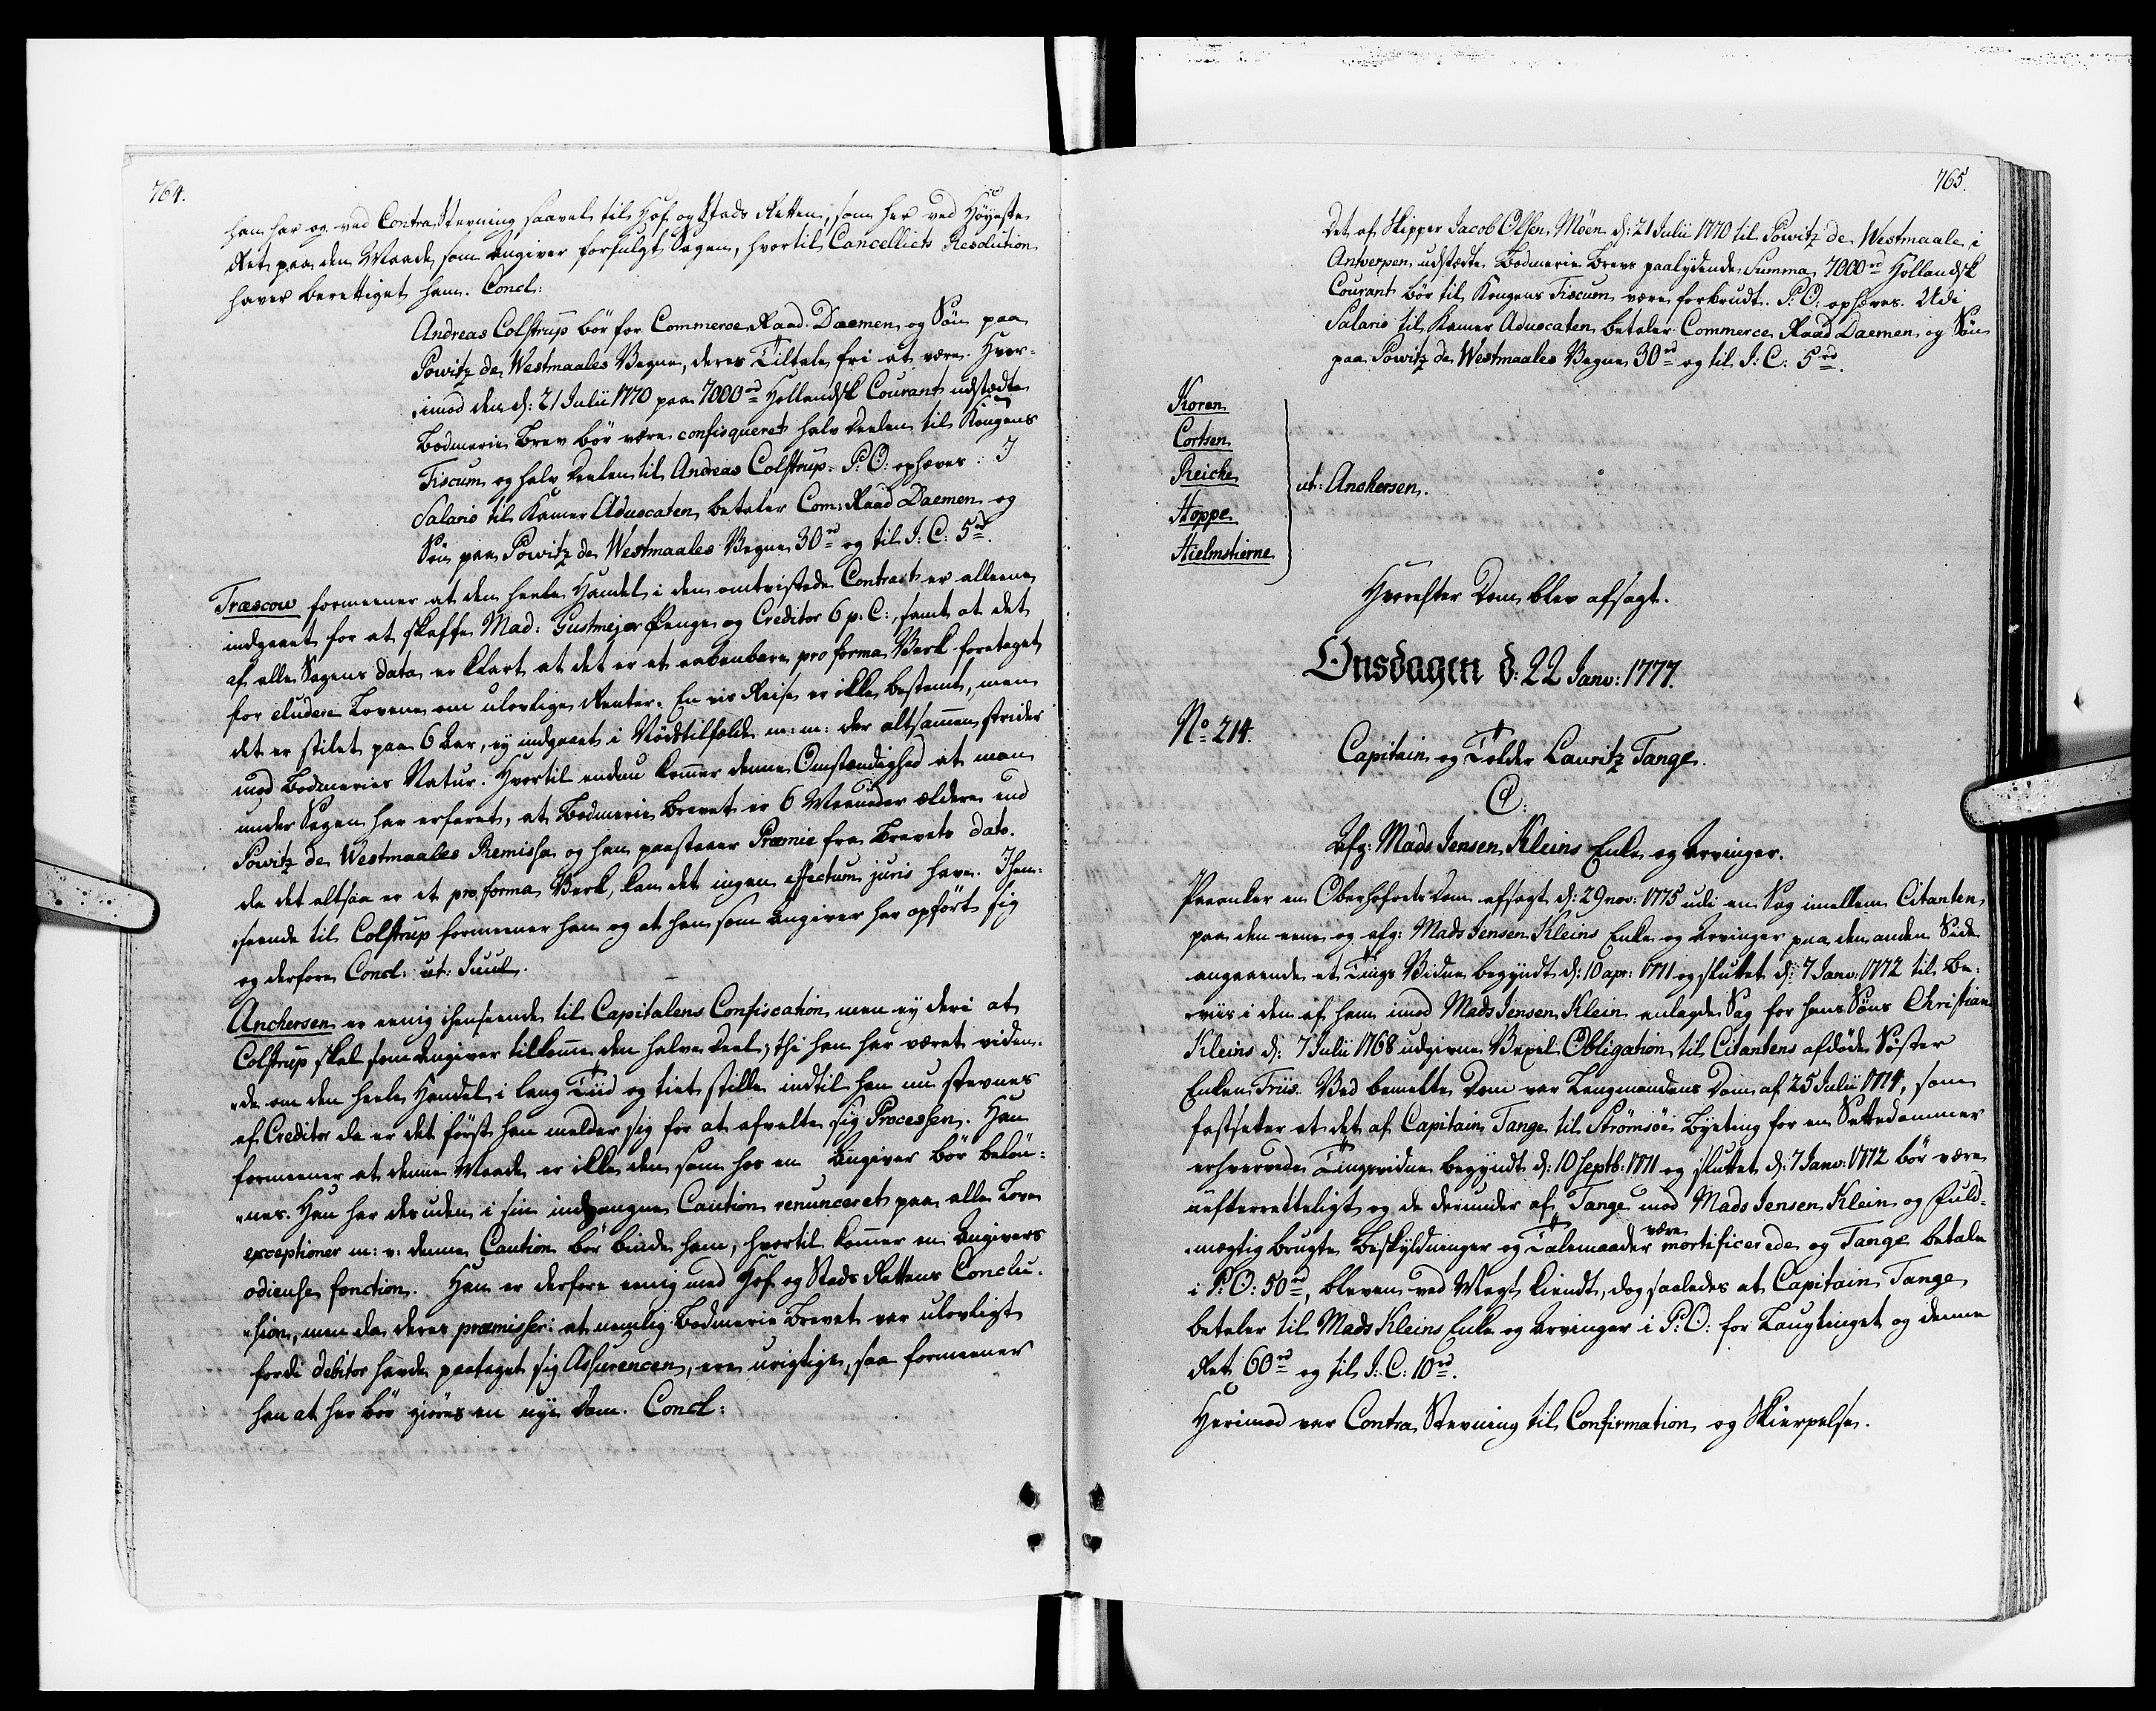 764.
han har og ved Contra Stevning saavel til Hof og Stads Retten, som her ved Höyeste
Ret paa den Maade som Angiver forfulgt Sagen, hvortil Cancelliets Resolution
haver berettiget ham. Concl:
Andreas Colstrup bör for Commerce Raad Daemen og Sön paa
Powitz de Westmaales Vegne, deres Tiltale fri at være. Hver-
imod den d: 21 Julii 1770 paa 7000 rd Hollandsk Courant udstædte
Bodmerie Brev bör være confisqueret halv Deelen til Kongens
Fiscum og halv Deelen til Andreas Colstrup. P: O: ophæves. I
Salario til Kamer Advocaten betaler Com: Raad Daemen og
Sön paa Powitz de Westmaales Vegne 30 rd og til J: C: 5 rd.
Træscow formeener at den heele Handel i den omtvistede Contract er alleene
indgaaet for at skaffe Mad: Gustmejer Penge og Creditor 6 p: C:, samt at det
af alle Sagens data er klart at det er et aabenbare pro forma Værk foretaget
for eludere Lovene om ulovlige Renter. En vis Reise er ikke bestemt, men
det er stilet paa 6 Aar, ey indgaaet i Nödstilfælde m: m: der altsammen strider
mod Bodmeries Natur. Hvortil endnu kommer denne Omstændighed at man
under Sagen har erfaret, at Bodmerie Brevet er 6 Maaneder ældere end
Powitz de Westmaales Remissa og han paastaaer Præmie fra Brevets dato.
da det altsaa er et pro forma Værk, kan det ingen effectum juris have. Ihen-
seende til Colstrup formeener han og at han som Angiver har opfört sig
og derfore Concl: ut: Juul.
Anchersen er eenig ihenseende til Capitalens Confiscation men ey deri at
Colstrup skal som Angiver tilkomme den halve Deel; thi han har været viden-
de om den heele Handel i lang Tiid og tiet stille indtil han nu stevnes
af Creditor da er det först han melder sig for at afvelte sig Processen. Han
formeener at denne Maade er ikke den som hos en Angiver bör belön-
nes. Han har desuden i sin indgangne Caution renunceret paa alle Love
exceptioner m: v: denne Caution bör binde ham, hvortil kommer en Angivers
odieuse fonction. Han er derfore eenig med Hof og Stads Rettens Conclu-
sion, men da deres præmisser: at nemlig Bodmerie Brevet var ulovligt
fordi debitor havde paataget sig Assurencen, ere urigtige, saa formeener
han at her bör giöres en nye Dom. Concl:
765.
det af Skipper Jacob Olsen Möen d: 21 Julii 1770 til Powitz de Westmaale i
Antverpen udstædte Bodmerie Brevs paalydende Summa 7000 rd Hollandsk
Courant bör til Kongens Fiscum være forbrudt. P: O: ophæves. Udi
Salario til Kamer Advocaten betaler Commerce Raad Daemen og Sön
paa Powitz de Westmaales Vegne 30 rd og til J: C: 5 rd.
Koren
Cortsen
Reiche
ut: Anchersen.
Hoppe
Hielmstierne
Hvorefter Dom blev afsagt.
Onsdagen d: 22 Janv: 1777.
No 214.
Capitain og Tolder Lauritz Tange.
C:
Afg: Mads Jensen Kleins Enke og Arvinger.
Paaanker en Oberhofrets Dom afsagt d: 29 nov: 1775 udi en Sag imellem Citanten
paa den eene og afg: Mads Jensen Kleins Enke og Arvinger paa den anden Side
angaaende et Tings Vidne begyndt d: 10 apr: 1771 og sluttet d: 7 Janv: 1772 til Be-
viis i den af ham imod Mads Jensen Klein anlagde Sag for hans Söns Christian
Kleins d: 7 Julii 1768 udgivne Vexel Obligation til Citantens afdöde Söster
Enken Friis. Ved bemelte Dom var Laugmandens Dom af 25 Julii 1774, som
fastsetter at det af Capitain Tange til Strömsöe Byeting for en Settedommer
erhvervede Tingsvidne begyndt d: 10 Septb: 1771 og sluttet d: 7 Janv: 1772 bör være
uefterretteligt og de derunder af Tange mod Mads Jensen Klein og Fuld-
mægtig brugte Beskyldninger og Talemaader være mortificerede og Tange betale
i P: O: 50 rd, bleven ved Magt kiendt, dog saaledes at Capitain Tange
betaler til Mads Kleins Enke og Arvinger i P: O: for Laugtinget og denne
Ret 60 rd og til J: C: 10 rd.
Herimod var Contra Stevning til Confirmation og Skierpelse.